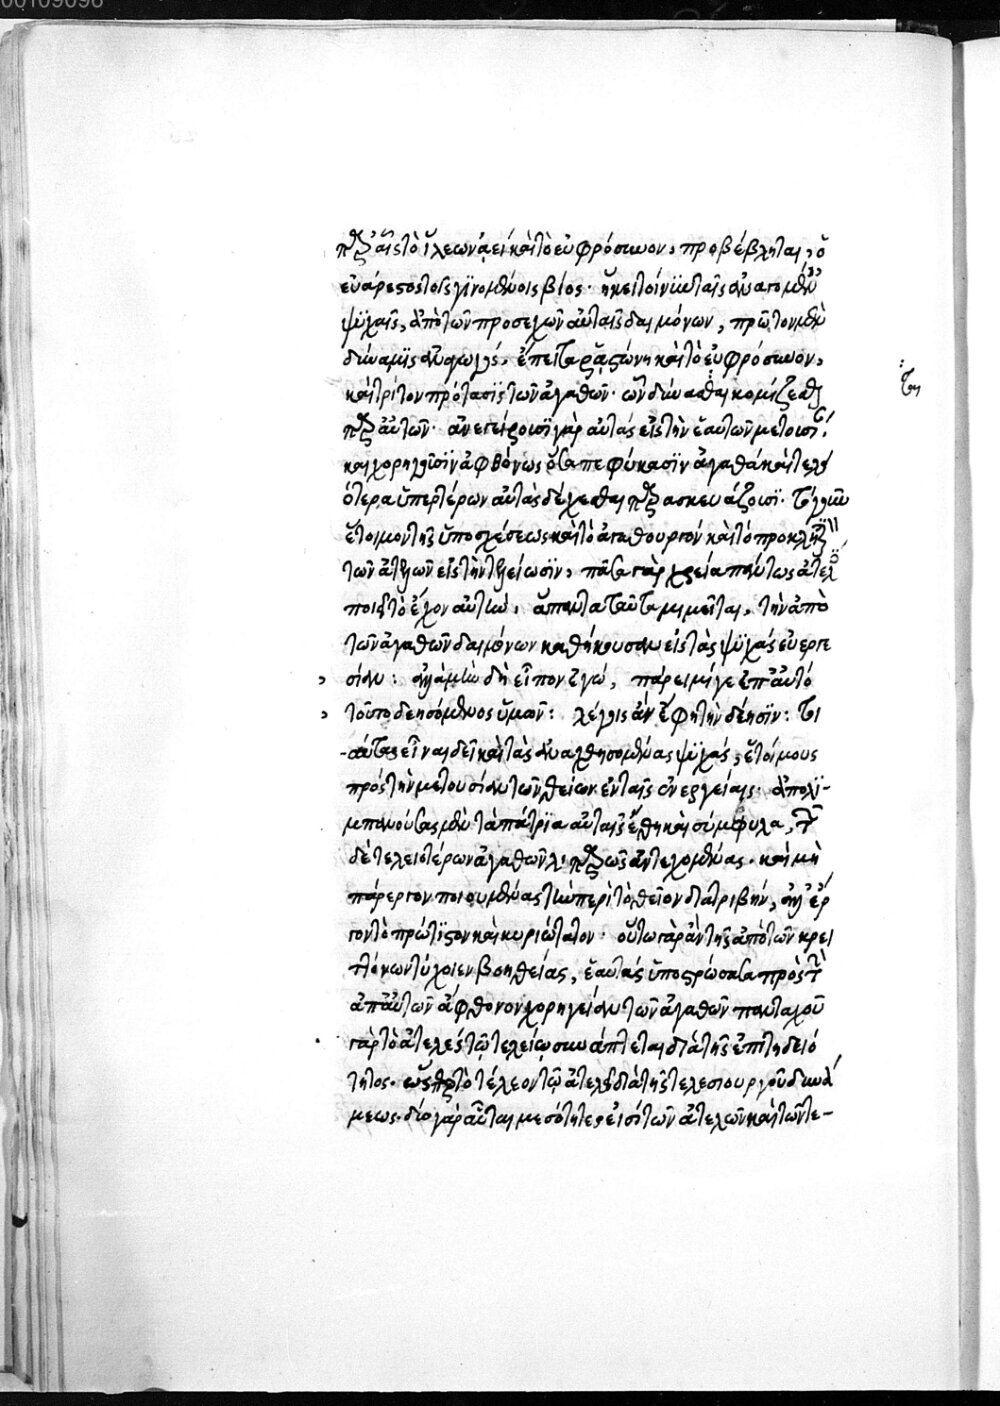 παρ' αἷς τὸ ἵλεων ἀεὶ καὶ τὸ εὐφρόσυνον, προβέβληται, ὁ
εὐάρεστος τοῖς γινομένοις βίος· ἥκει τοίνυν ταῖς ἀναγομέν
ψυχαῖς, ἀπὸ τῶν προσεχῶν αὐταῖς δαιμόνων, πρῶτον μὲν
δύναμις ἀναγωγός, ἔπειτα ῥᾳστώνη καὶ τὸ εὐφρόσυνον,
καὶ τρίτον πρότασις τῶν ἀγαθῶν· ὧν δύνασθαι κομίζεσθαι
παρ' αὐτῶν· ἀνεγείρουσι γὰρ αὐτὰς εἰς τὴν ἑαυτῶν μετουσί
καὶ χορηγοῦσιν ἀφθόνως ὅσα πεφύκασιν ἀγαθὰ καὶ τελε
ότερα ὑπερτέρων αὐτὰς δέχεσθαι παρασκευάζουσι· τὸ γοῦν
ἕτοιμον τῆς ὑποσχέσεως καὶ τὸ ἀγαθουργὸν καὶ τὸ προκλητ
τῶν ἀτελῶν εἰς τὴν τελείωσιν, πᾶσα γὰρ χρεία πάντως ἀτελὲς
ποιεῖ τὸ ἔχον αὐτὴν, ἅπαντα ταῦτα μιμεῖται, τὴν ἀπὸ
τῶν ἀγαθῶν δαιμόνων καθήκουσαν εἰς τὰς ψυχὰς εὐεργε
σίαν: ἀλλὰ μὴν δὴ εἶπον ἐγώ, πάρειμί γε ἐπ' αὐτό
τοῦτο δεησόμενος ὑμῶν: λέγοις ἂν ἔφη τὴν δέησιν: τοι
αύτας εἶναι δεῖ καὶ τὰς ἀναχθησομένας ψυχὰς, ἑτοίμους
πρὸς τὴν μετουσίαν τῶν θείων ἐν ταῖς ἐνεργείαις· ἀπολι-
μπανούσας μὲν τὰ πάτρια αὐταῖς ἔθη καὶ σύμφυλα, τῶν
δὲ τελειοτέρων ἀγαθῶν ἀντεχομένας· καὶ μὴ
πάρεργον ποιουμένας τὴν περὶ τὸ θεῖον διατριβήν, ἀλλ' ἔρ
γον τὸ πρώτιστον καὶ κυριώτατον· οὕτω γὰρ ἂν τῆς ἀπὸ τῶν κρει
ττόνων τύχοιεν βοηθείας, ἑαυτὰς ὑποστρώσασαι πρὸς τὴν
ἀπ' αὐτῶν ἄφθονον χορηγείαν τῶν ἀγαθῶν πανταχοῦ
γὰρ τὸ ἀτελὲς τῷ τελείῳ συνάπτεται διὰ τῆς ἐπιτηδειό
τητος· ὥσπερ τὸ τέλεον τῷ ἀτελεῖ διὰ τῆς τελεσιουργοῦ δυνά
μεως· δύο γὰρ αὗται μεσότητες εἰσὶ τῶν ἀτελῶν καὶ τῶν τε-